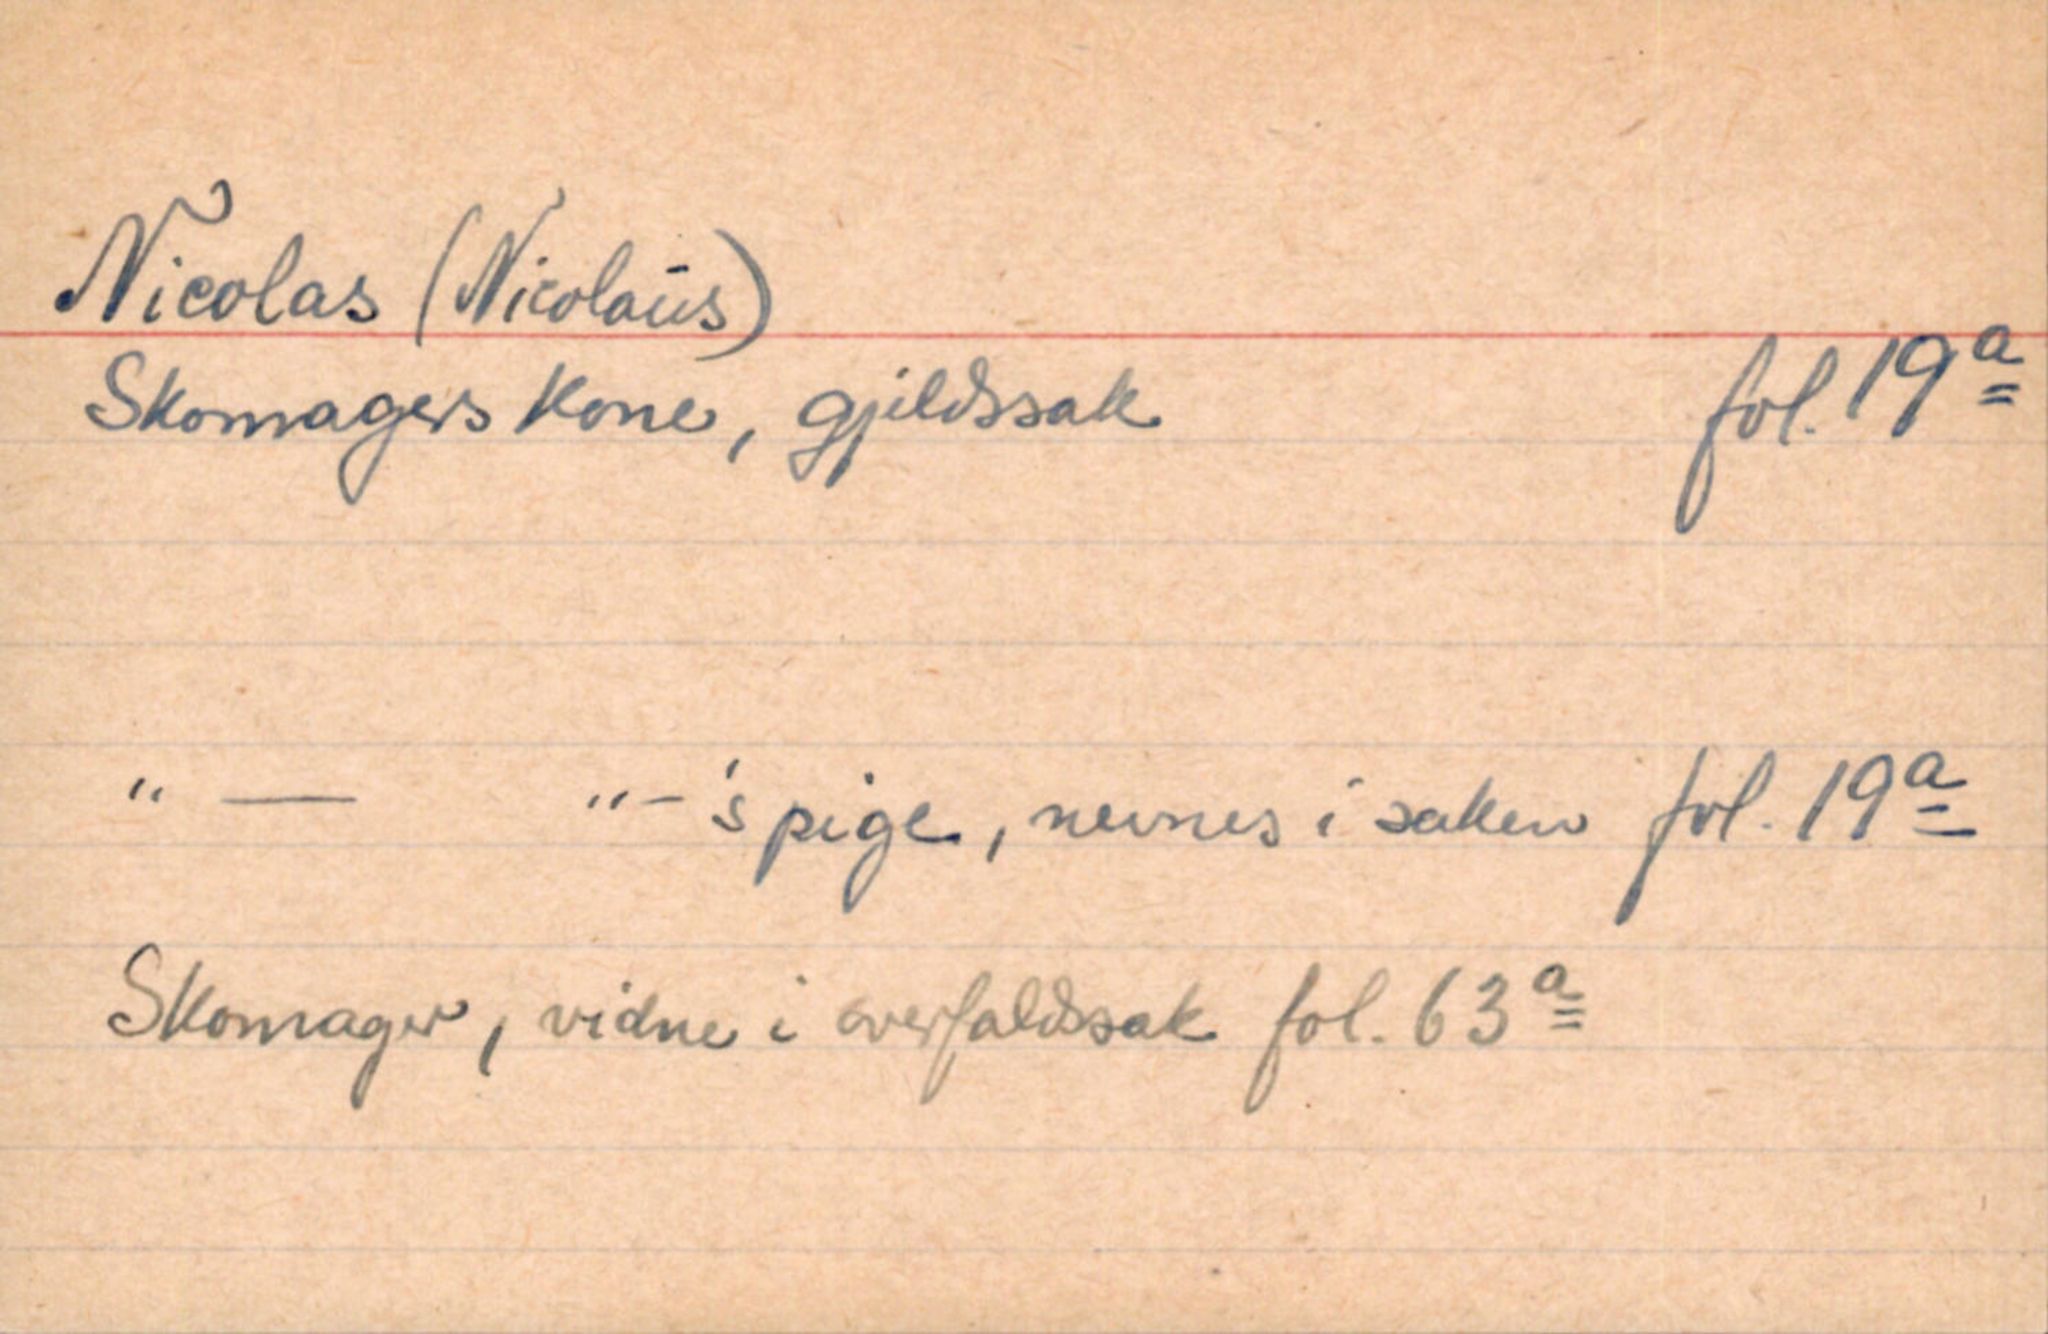 Nicolas (Nicolaus)
Skomagers Kone, gjeldssak fol. 19a
" — "-'s pige, nevnes i saken fol. 19a
Skomager, vidne i overfaldssak fol. 63a